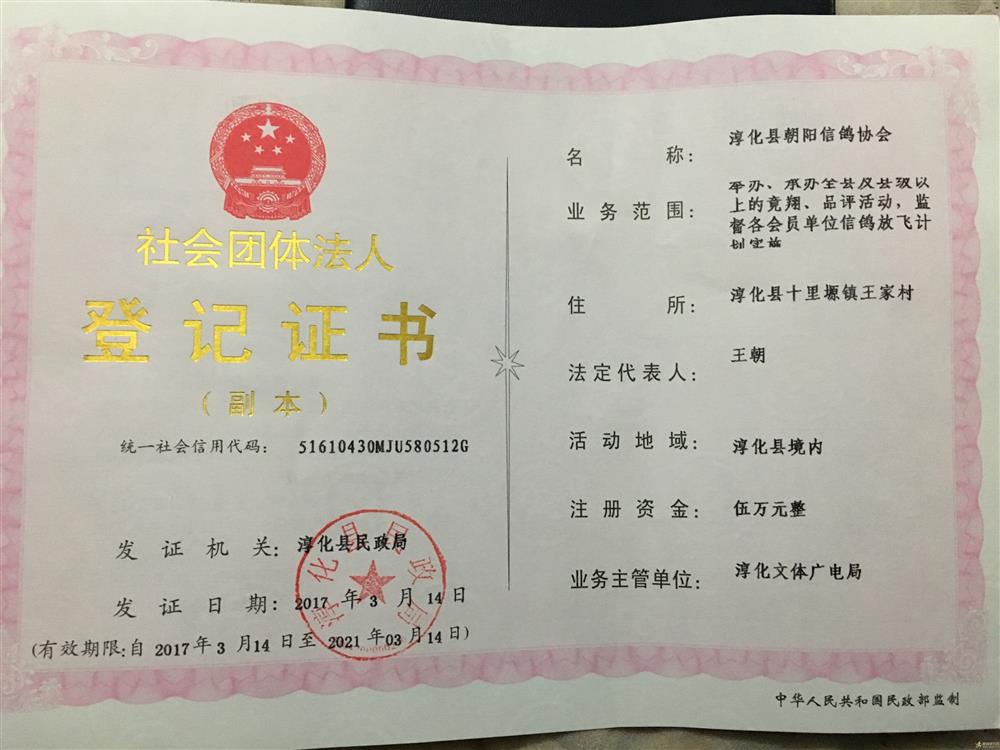 社会团体法人
登记证书
（副本）
统一社会信用代码： 51610430MJU580512G
发证机关： 淳化县民政局
发证日期： 2017 年 3 月 14 日
（有效期限：自 2017 年 3 月 14 日至 2021 年 03 月 14 日）
名称： 淳化县朝阳信鸽协会
业务范围： 举办、承办全县及县级以
上的竞翔、品评活动，监
督各会员单位信鸽放飞计
划实施
住所： 淳化县十里塬镇王家村
法定代表人： 王朝
活动地域： 淳化县境内
注册资金： 伍万元整
业务主管单位： 淳化文体广电局
中华人民共和国民政部监制
淳化县民政局